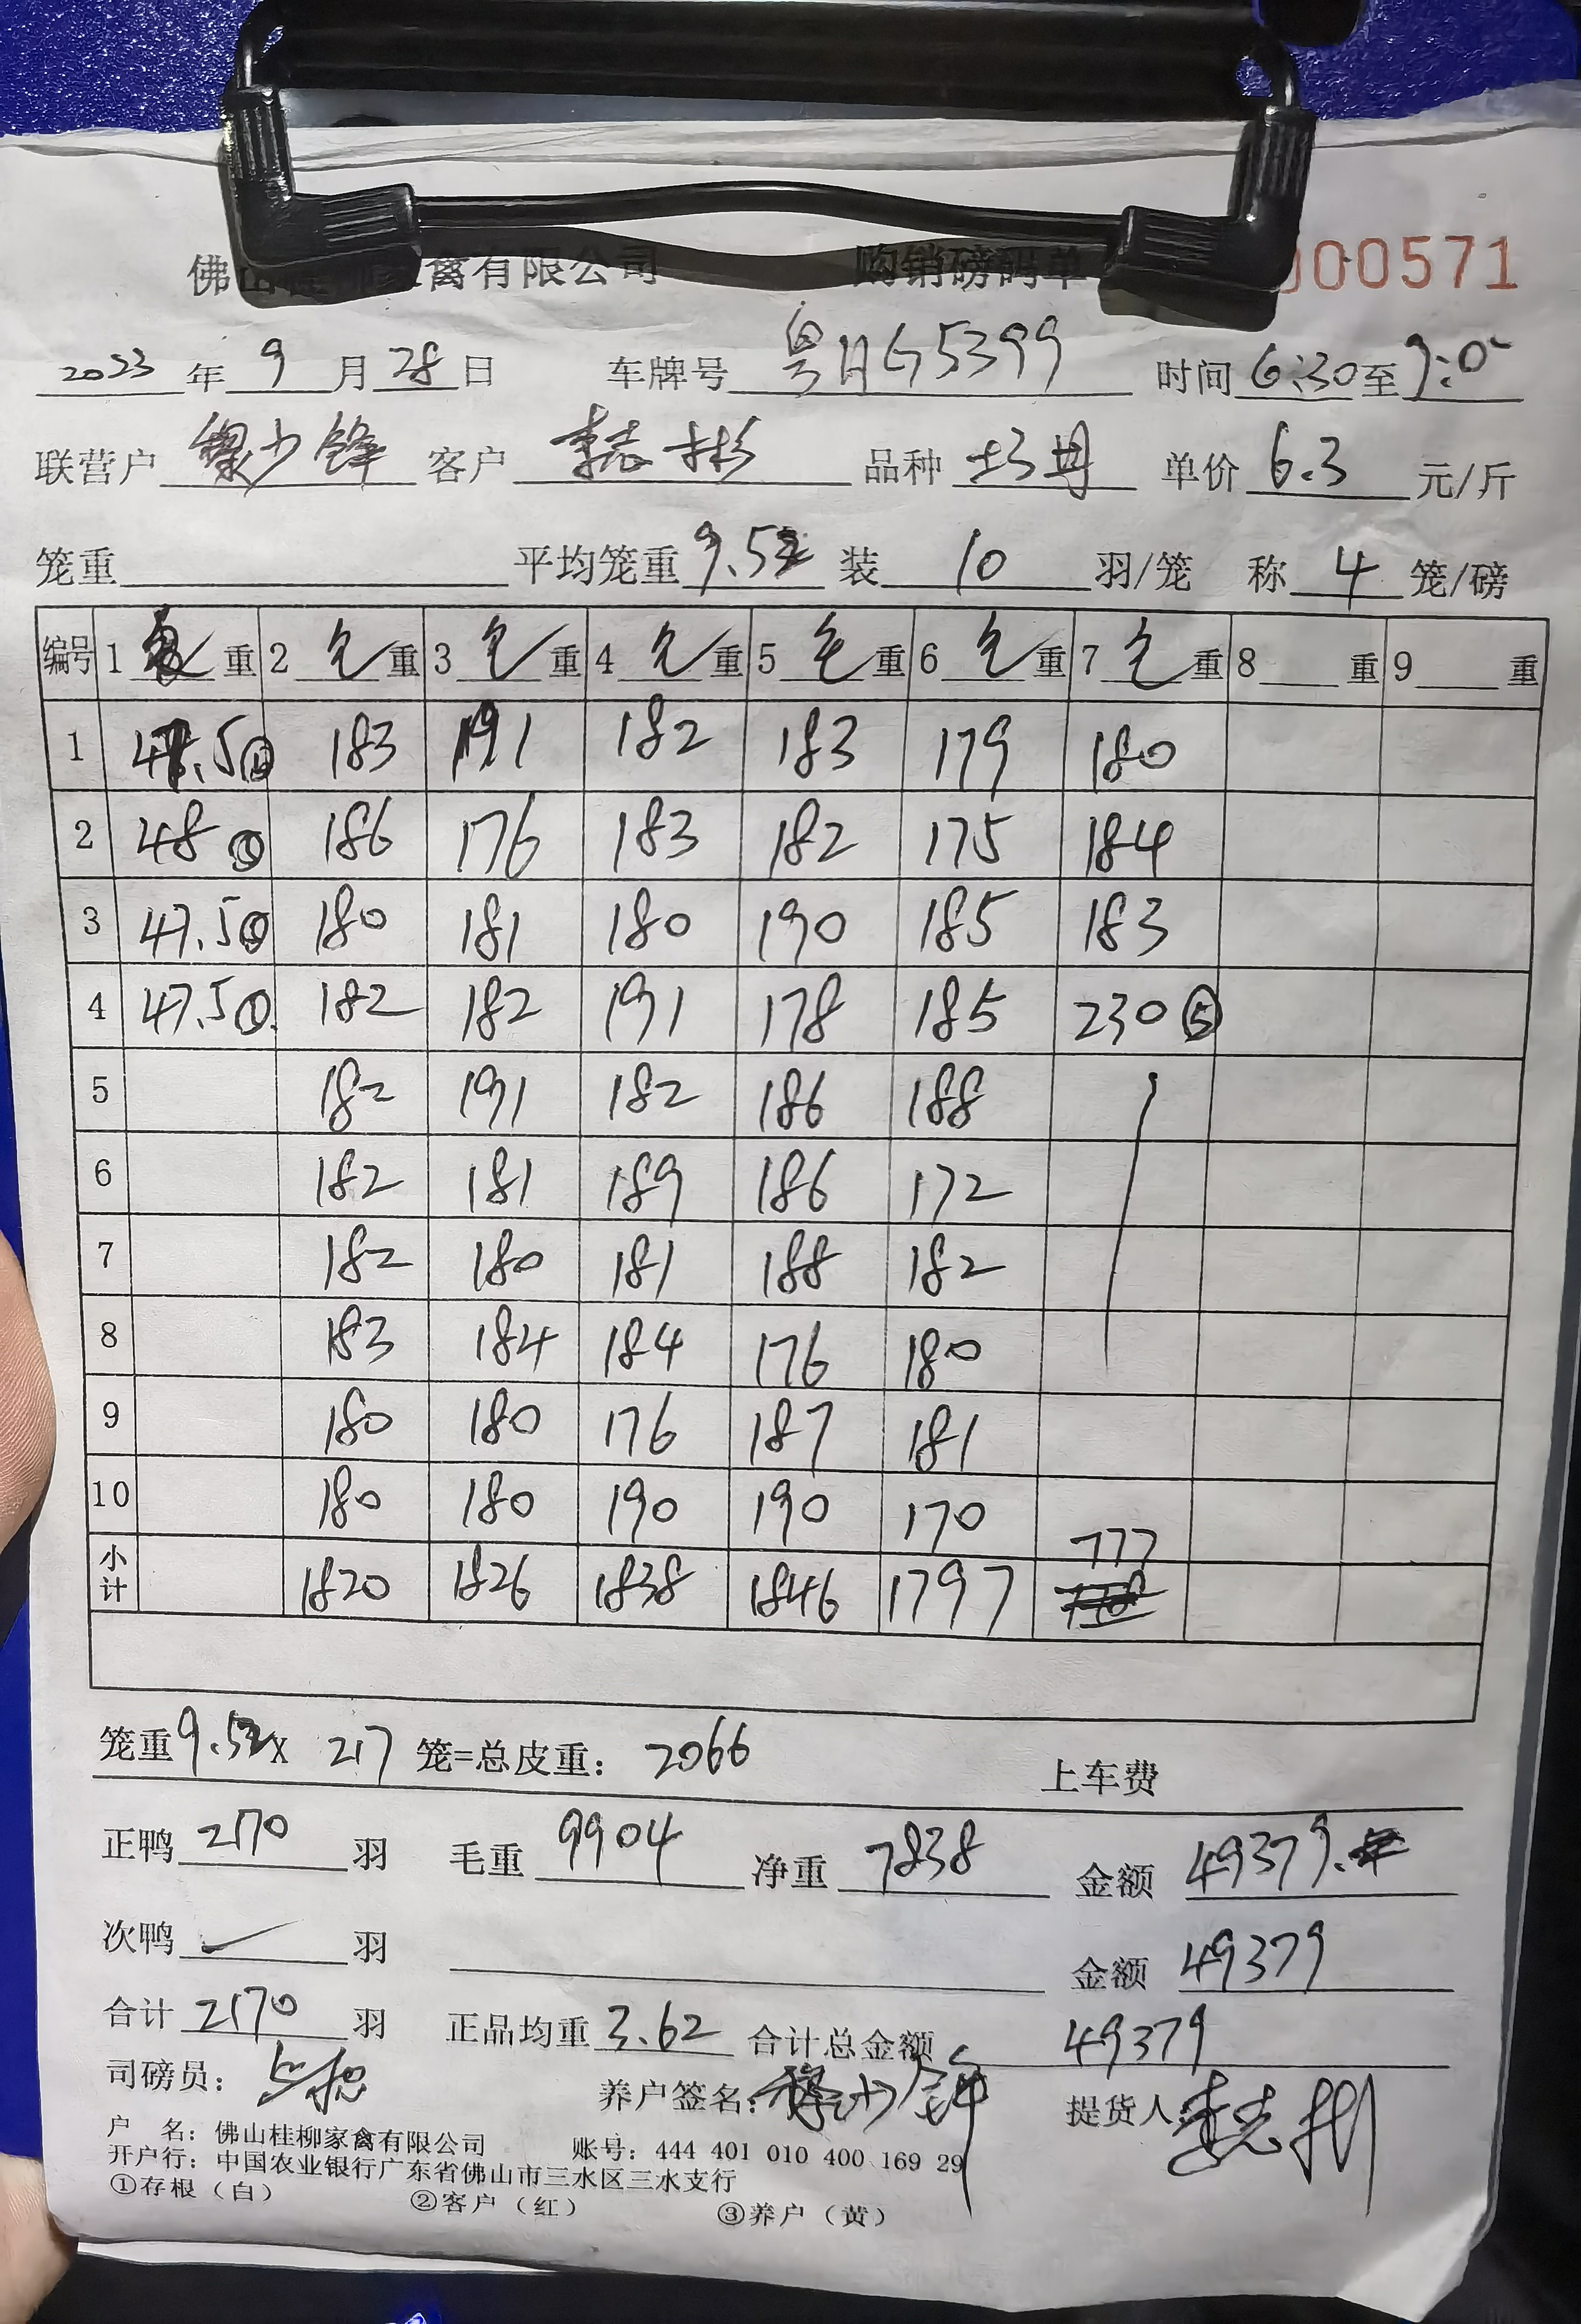 佛山桂柳家禽有限公司 购销磅码单 000571
2023年9月28日 车牌号粤HG5399 时间6:30至9:0
联营户 少锋 客户 李志彬 品种 单价6.3元/斤
笼重 平均笼重9.52 装10羽/笼 称4笼/磅
编号 1 重 2毛重 3毛重 4毛重 5毛重 6毛重 7毛重 8 重 9 重
1 47.5 183 191 182 183 179 180
2 48⑤ 186 176 183 182 175 184
3 47.5⑤ 180 181 180 190 185 183
4 47.5⑤ 182 182 191 178 185 230⑤
5 182 191 182 186 188
6 182 181 189 186 172
7 182 180 181 188 182
8 183 184 184 176 180
9 180 180 176 187 181
10 180 180 190 190 170
小计 1820 1826 1838 1846 1797 777
笼重9.52X 217 笼=总皮重：2066 上车费
正鸭2170羽 毛重9904 净重7838 金额49379.
次鸭 羽 金额49379
合计2170羽 正品均重3.62 合计总金额49379
司磅员： 养户签名： 少锋 提货人：李志彬
户 名：佛山桂柳家禽有限公司 账号：444 401 010 400 169 29
开户行：中国农业银行广东省佛山市三水区三水支行
①存根（白） ②客户（红） ③养户（黄）